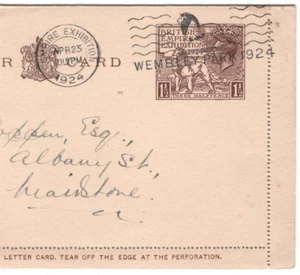 EMPIRE EXHIBITION
APR23
1924
WEMBLEY PARK 1924
BRITISH
EMPIRE
EXHIBITION
1924
1½ THREE HALFPENCE 1½
R CARD
Esq.,
Albany St.,
Maidstone.
LETTER CARD. TEAR OFF THE EDGE AT THE PERFORATION.